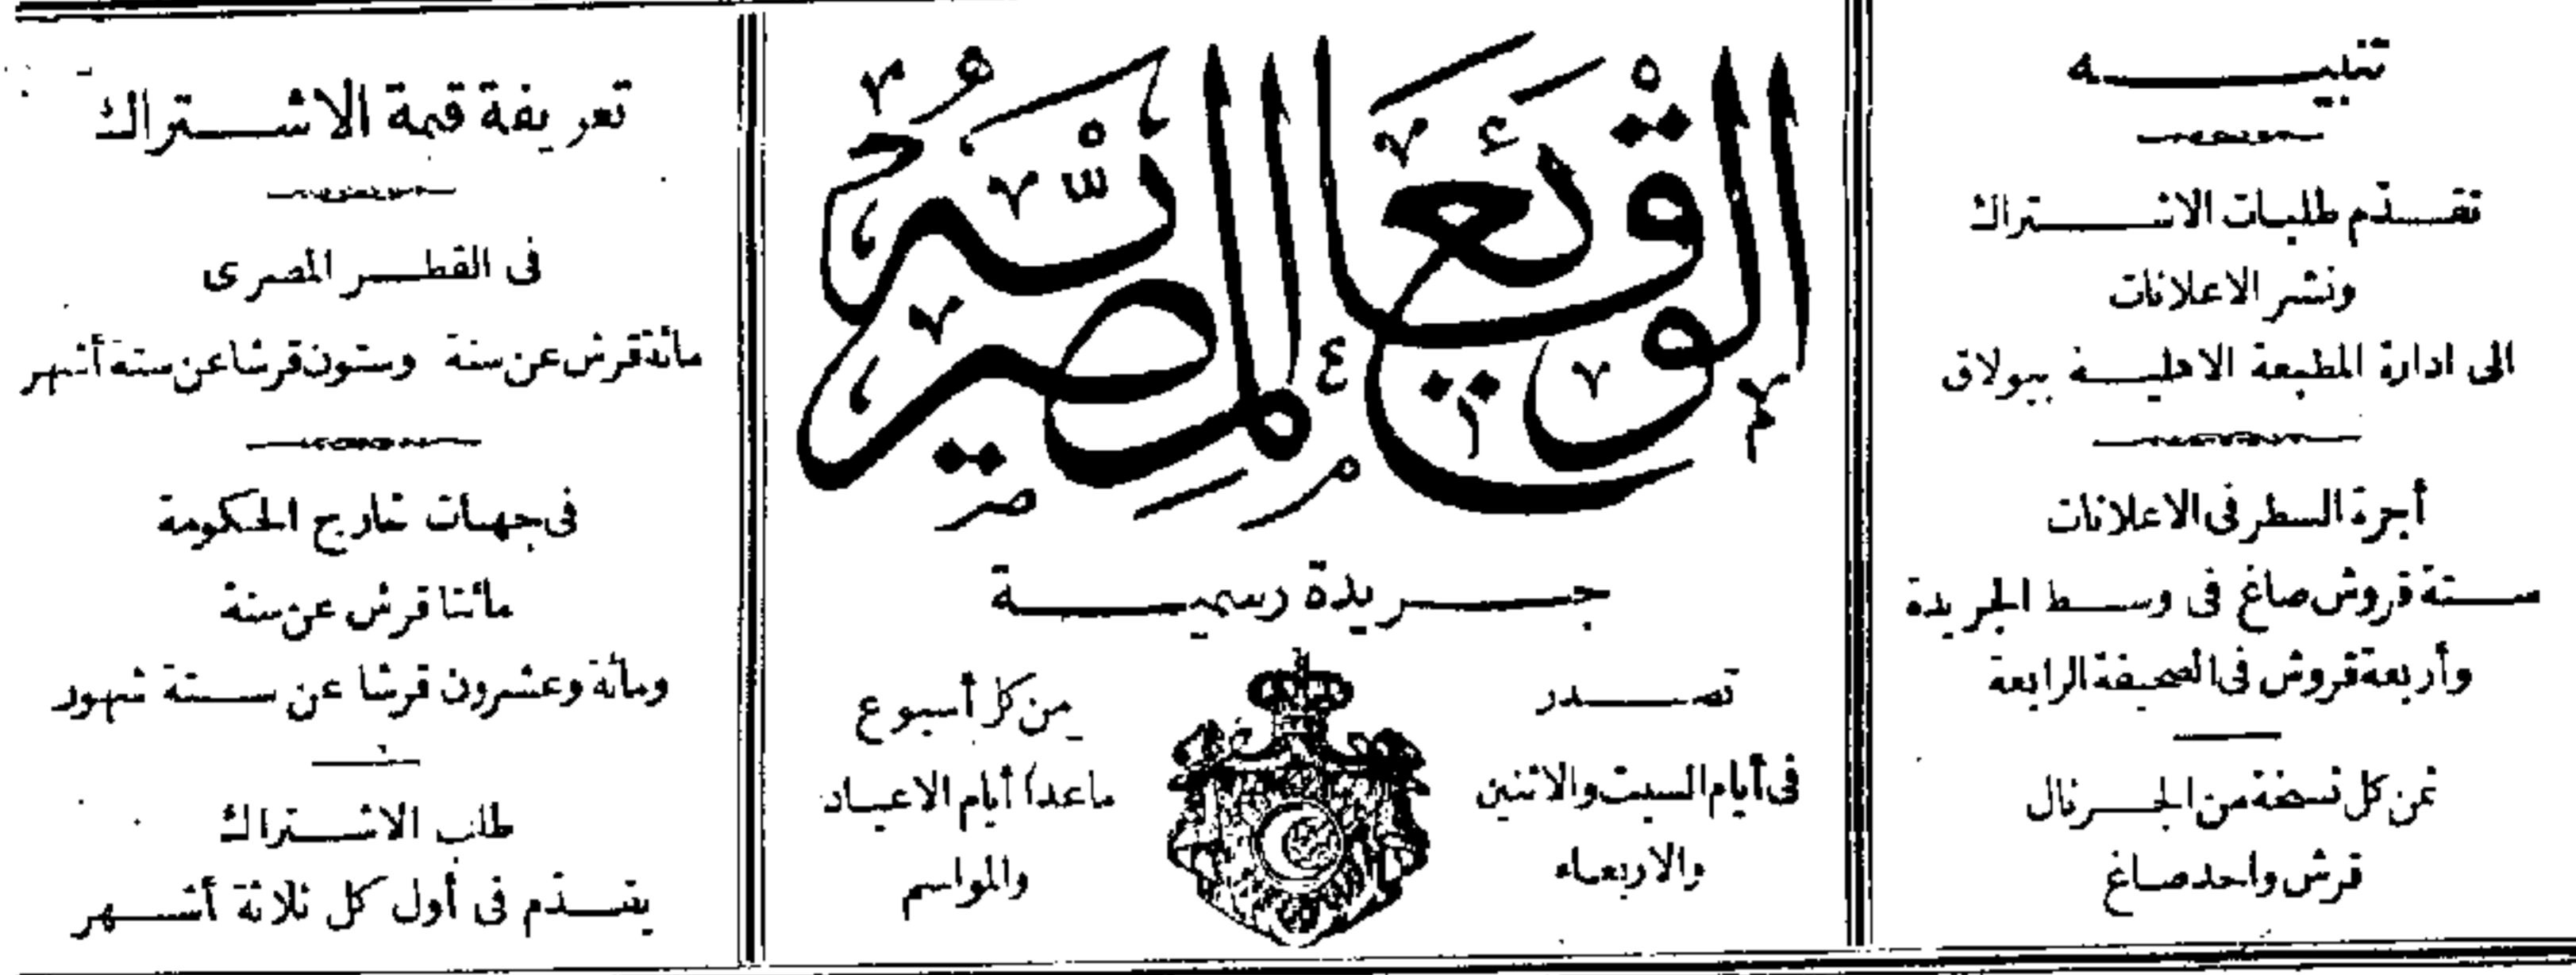 تنبيه
تقدّم طلبات الاشتراك
ونشر الاعلانات
الى ادارة المطبعة الاهلية ببولاق
أجرة السطر فى الاعلانات
ستة قروش صاغ فى وسط الجريدة
وأربعة قروش فى الصحيفة الرابعة
ثمن كل نسخة من الجرنال
قرش واحد صاغ
الوقائع المصرية
جريدة رسمية
تصدر
فى أيام السبت والاثنين
والاربعاء
من كل أسبوع
ماعدا أيام الاعياد
والمواسم
تعريفة قيمة الاشتراك
فى القطر المصرى
مائة قرش عن سنة وستون قرشا عن ستة أشهر
فى جهات خارج الحكومة
مائتا قرش عن سنة
ومائة وعشرون قرشا عن ستة شهور
طلب الاشتراك
يقدّم فى أول كل ثلاثة أشهر